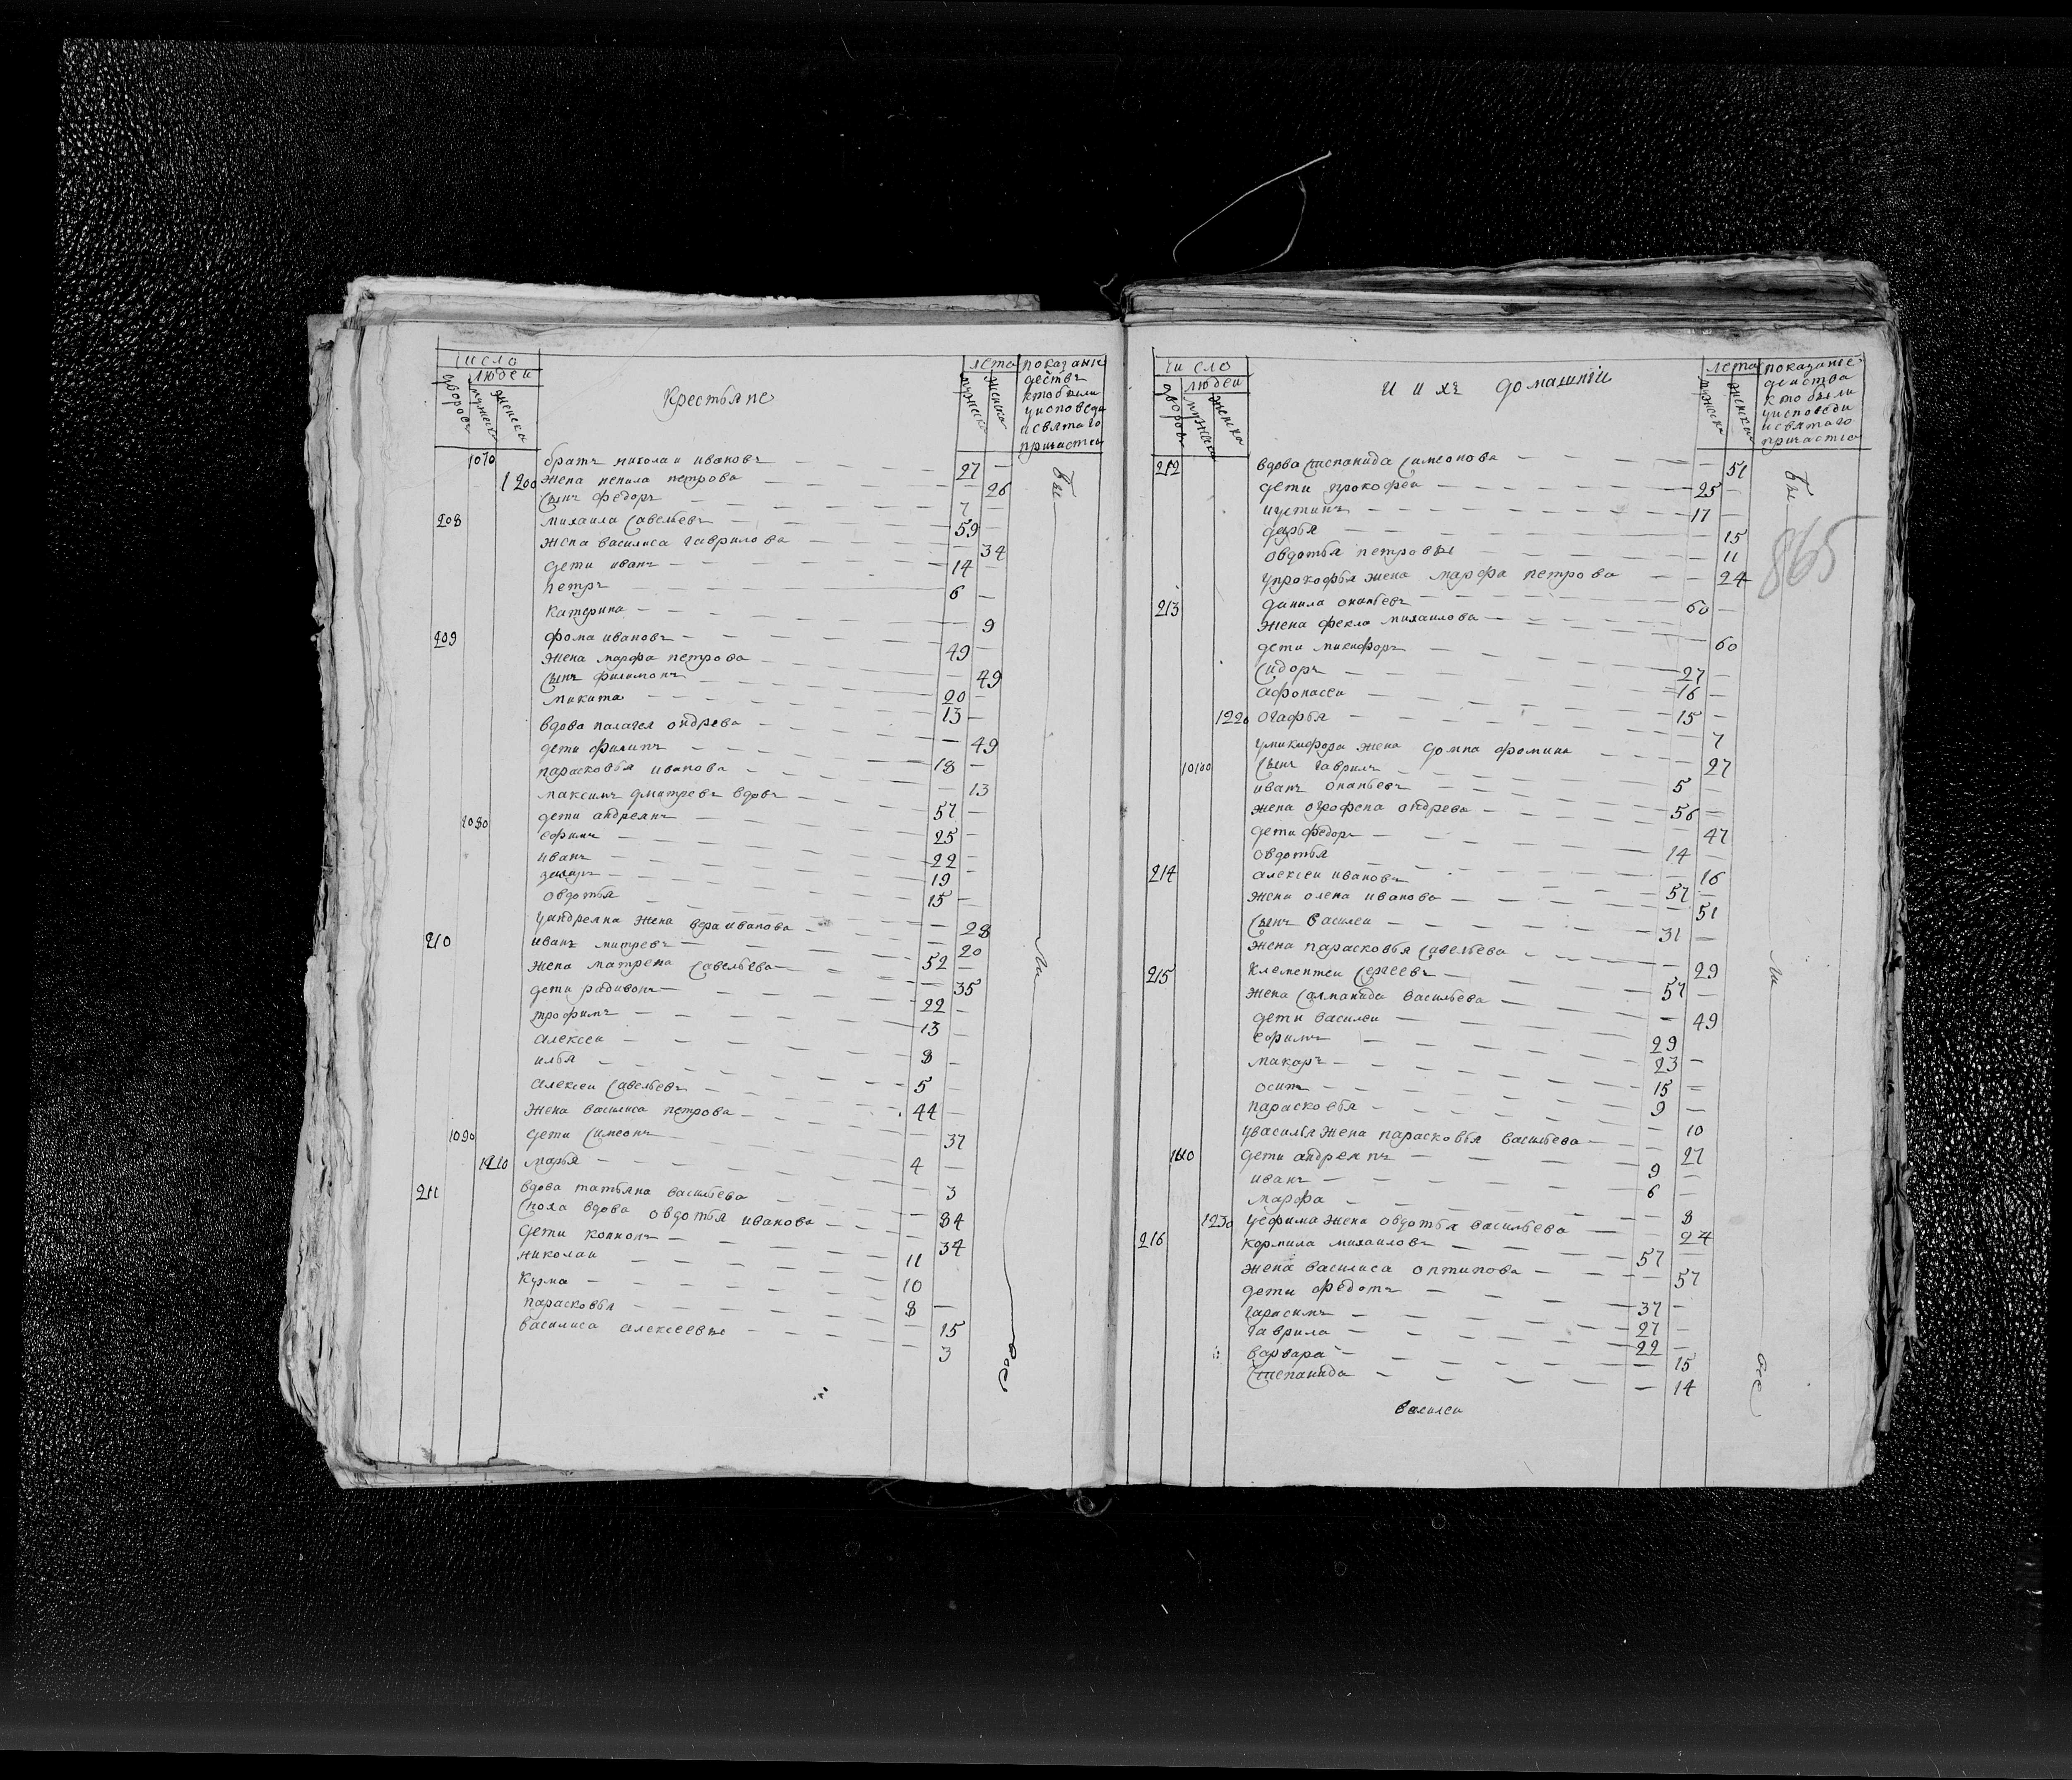 число
людеи
дворовъ
мужеска
женска
Крестьяне
лета
мужеска
женска
показание
действъ
кто были
у исповеди
и святаго
причастия
1070 братъ николаи ивановъ 27
1200 жена ненила петрова 26
сынъ федоръ 7
208 михаила савельевъ 59
жена василиса гаврилова 34
дети иванъ 14
петръ 6
катерина 9
209 фома ивановъ 49
жена марфа петрова 49
сынъ филимонъ 20
никита 13
вдова палагея ондрева 49
дети филипъ 18
парасковья иванова 13
максимъ дмитревъ вдовъ 57
1080 дети андреянъ 25
ефимъ 22
иванъ 19
15
овдотья 28
у андреяна жена вера иванова 20
210 иванъ митревъ 52
жена матрена савельева 35
дети радивонъ 22
трофимъ 13
алексеи 8
илья 5
алексеи савельевъ 44
жена василиса петрова 37
1090 дети симеонъ 4
1210 марья 3
211 вдова татьяна васильева 84
сноха вдова овдотья иванова 34
дети кононъ 11
николаи 10
кузма 8
парасковья 15
василиса алексеевы 3
Бы
ли
все
число
людеи
дворовъ
мужеска
женска
и ихъ домашнiи
лета
мужеска
женска
показание
действа
кто были
у исповеди
и святаго
причастия
212 вдова степанида симеонова 51
дети прокофеи 25
иустинъ 17
дарья 15
овдотья петровы 11
у прокофья жена марфа петрова 24
865
213 данила онаньевъ 60
жена фекла михаилова 60
дети никифоръ 27
сидоръ 16
афонасеи 15
1220 огафья 7
у никифора жена домна фомина 27
10100 сынъ гаврилъ 5
иванъ онаньевъ 56
жена огрофена ондрева 47
дети федоръ 14
овдотья 16
214 алексеи ивановъ 57
жена олена иванова 51
сынъ василеи 31
жена парасковья савельева 29
215 клементеи сергеевъ 57
жена саманида васильева 49
дети василеи 29
ефимъ 23
макаръ 15
осипъ 9
парасковья 10
у василья жена парасковья васильева 27
1110 дети андреянъ 9
иванъ 6
марфа 8
1230 у ефима жена овдотья васильева 24
216 кормила михаиловъ 57
жена василиса онтипова 57
дети федотъ 37
гарасимъ 27
гаврила 22
варвара 15
степанида 14
Бы
ли
все
василеи